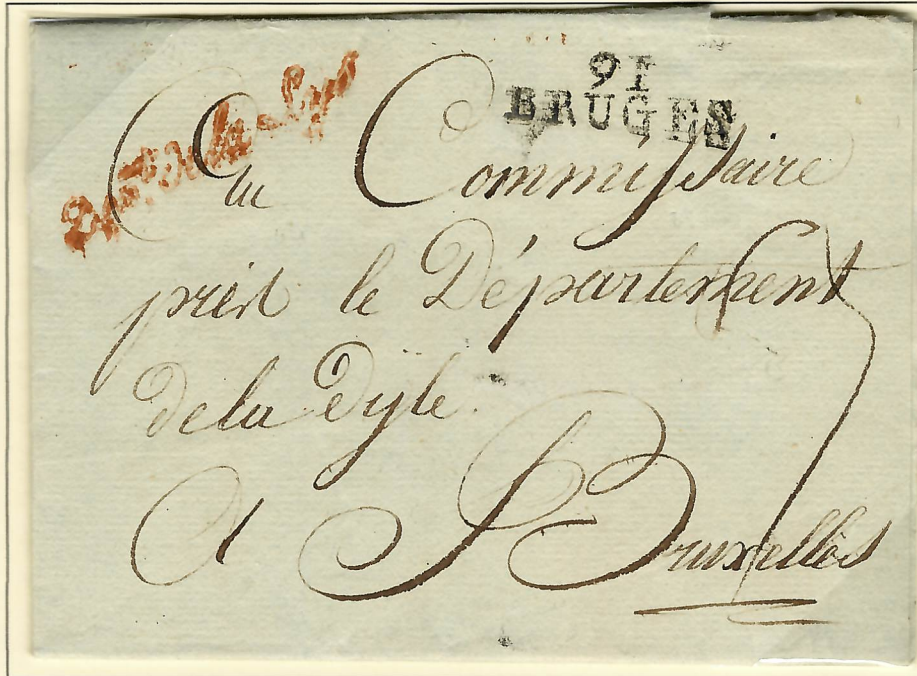 Dept. de la Lys
91
BRUGES
Au Commissaire
près le Département
de la Dyle.
A Bruxelles